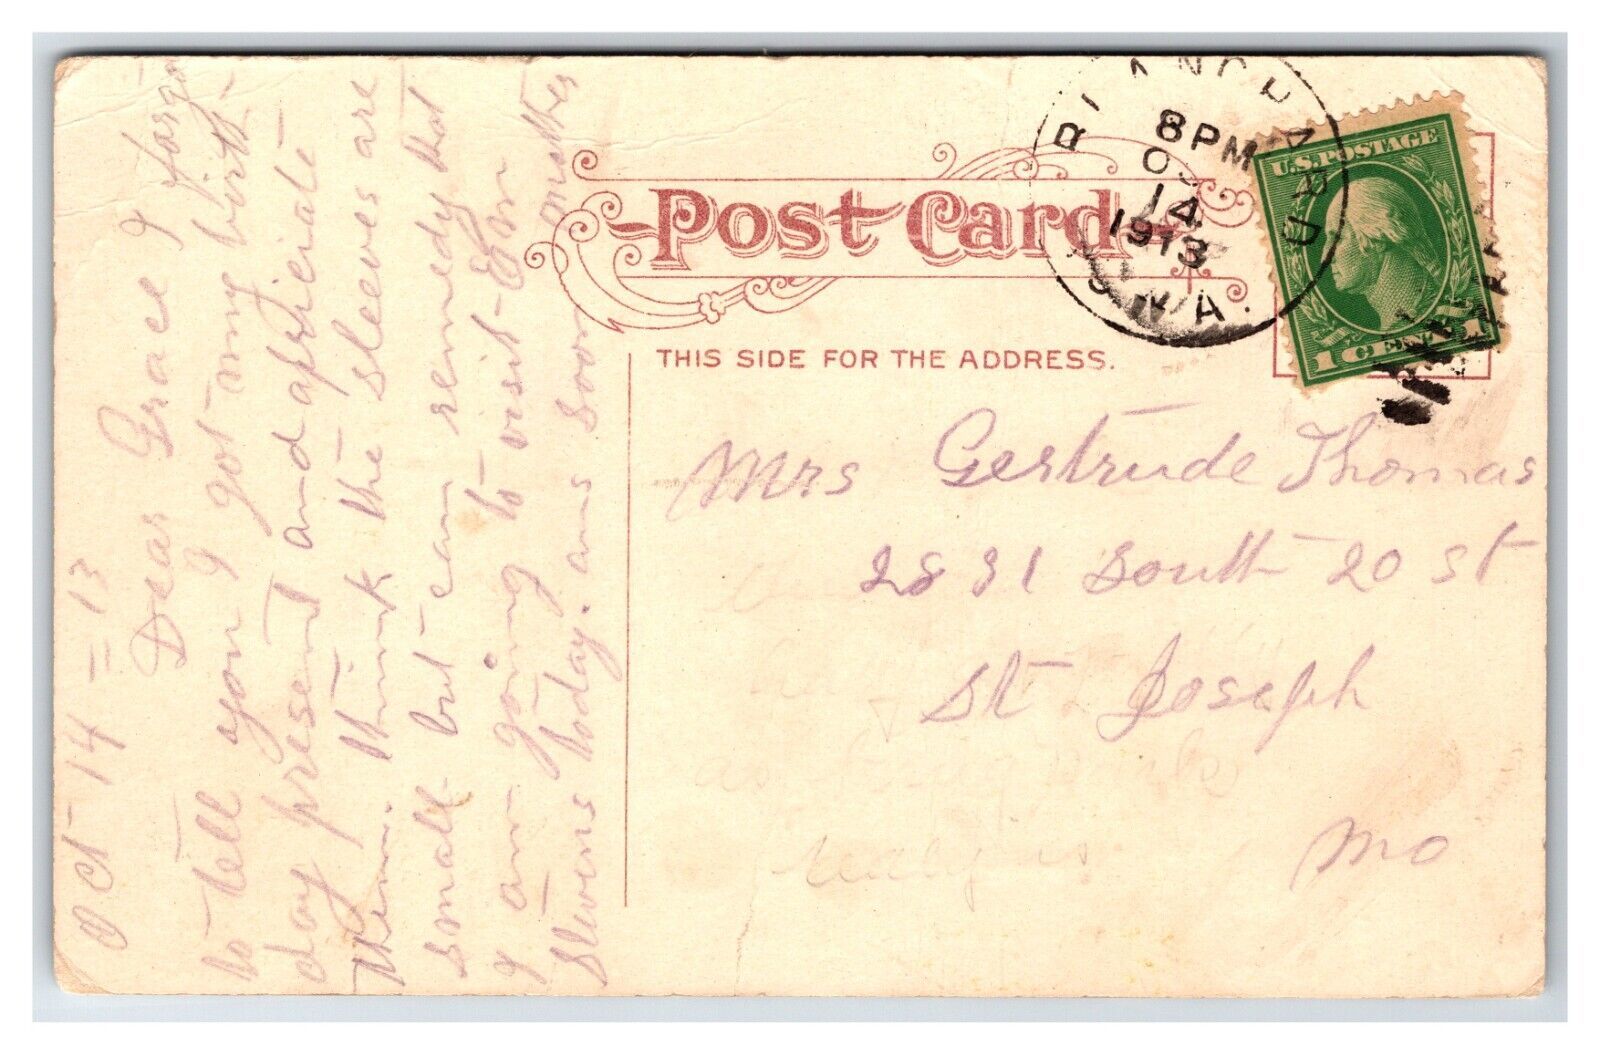 Oct-14=13
Dear Grace I forgo
to tell you I got my birth-
day present and appriciate
them. think the sleeves are
small but can remedy that
I am going to visit-
Stevens today. ans soon mother
Post Card
THIS SIDE FOR THE ADDRESS.
8 PM
14
1913
U.S. POSTAGE
1 CENT 1
Mrs Gertrude Thomas
2831 South 20 st
St Joseph
Mo